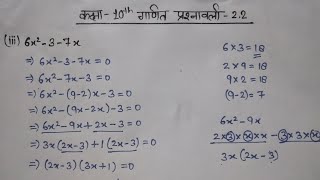 कक्षा-10th गणित प्रश्नावली-2.2
(iii) 6x²-3-7x
⇒ 6x²-3-7x = 0
⇒ 6x²-7x-3 = 0
⇒ 6x²-(9-2)x-3=0
⇒ 6x²-(9x-2x)-3=0
⇒ 6x²-9x+2x-3=0
⇒ 3x(2x-3)+1(2x-3)=0
⇒ (2x-3)(3x+1)=0
6×3=18
2×9=18
(9-2)=7
6x²-9x
2×3×x×x-3×3×x
3x(2x-3)